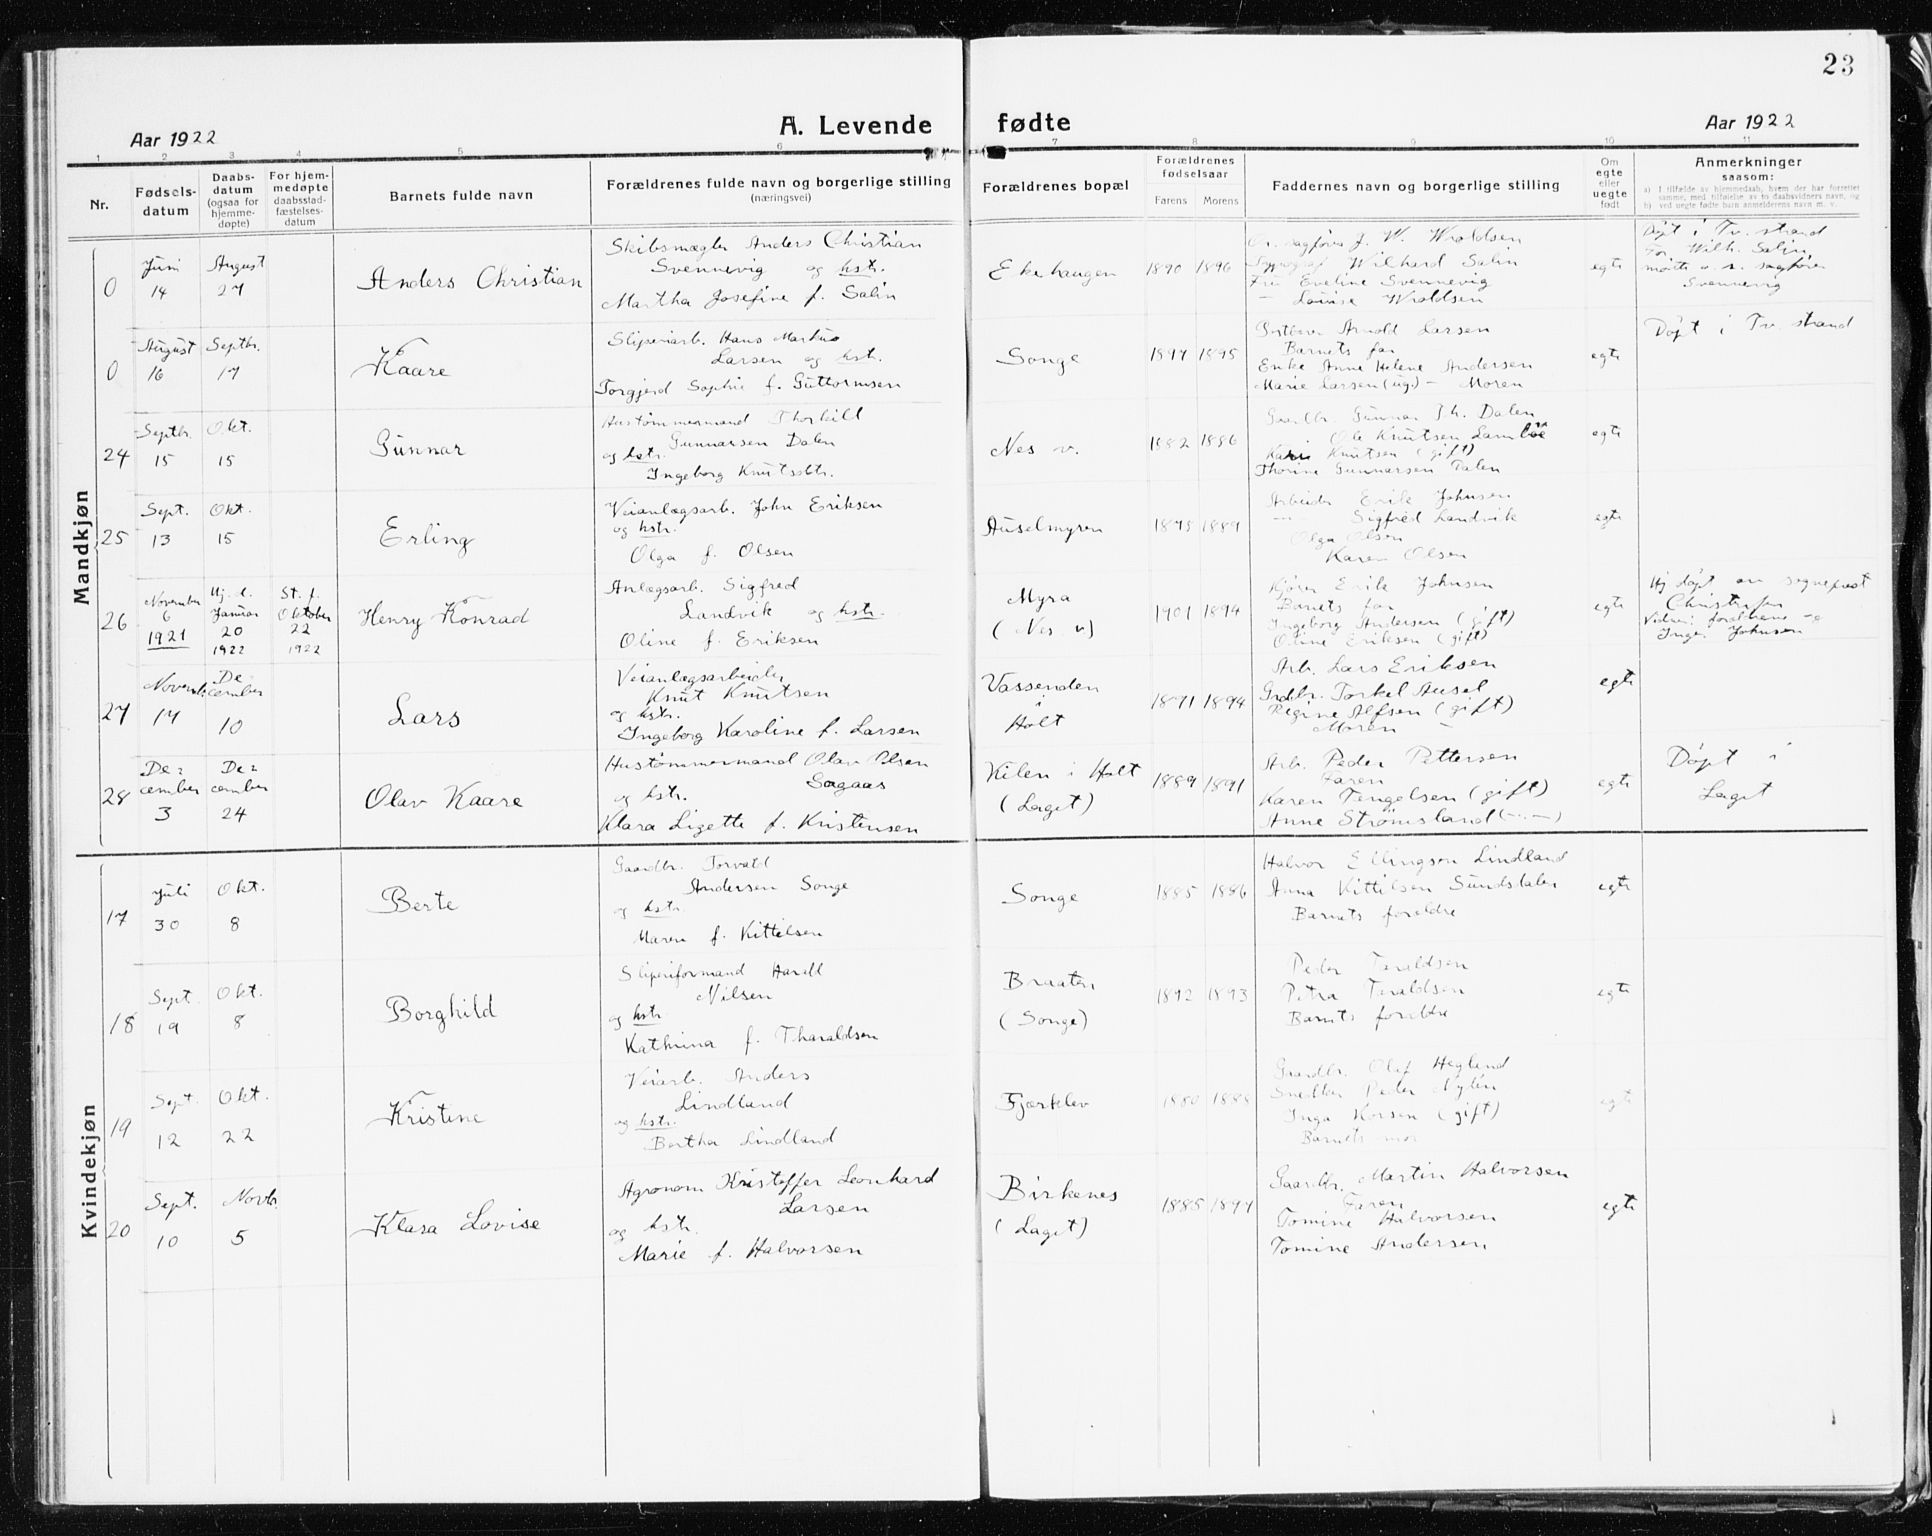 23
Aar 1922
A. Levende fødte
Aar 1922
1 2 3 4 5 6 7 8 9 10 11
Nr.
Fødsels-
datum
Daabs-
datum
(ogsaa for
hjemme-
døpte)
For hjem-
medøpte
daabsstad-
fæstelses-
datum
Barnets fulde navn
Forældrenes fulde navn og borgerlige stilling
(næringsvei)
Forældrenes bopæl
Forældrenes
fødselsaar
Farens Morens
Faddernes navn og borgerlige stilling
Om
egte
eller
uegte
født
Anmerkninger
saasom:
a) I tilfælde av hjemmedaab, hvem der har forrettet
samme, med tilføielse av to daabsvidners navn, og
b) ved uegte fødte barn anmelderens navn m. v.
Mandkjøn
0
Juni
14
August
27
Anders Christian
Skibsmægler Anders Christian
Svennevig og hstr.
Martha Josefine f. Salin
Ekehaugen
1890 1896
O. r. sagfører J. W. Wroldsen
Wilhard Salin
Fru Eveline Svennevig
— Lovise Wroldsen
egte
Døpt i Tv. strand
For Wilh. Salin
møtte o. r. sagfører
Svennevig
0
August
16
Septbr.
17
Kaare
Sliperiarb. Hans Markus
Larsen og hstr.
Torgjerd Sophie f. Guttormsen
Songe
1897 1895
Arnold Larsen
Barnets far
Enke Anne Helene Andersen
Marie Larsen (ug.) — Moren
egte
Døpt i Tv. strand
24
Septbr.
15
Okt.
15
Gunnar
Hustømmermand Thorkild
Gunnarsen Dalen
og hstr.
Ingeborg Knutsdtr.
Nes v.
1882 1886
Gaardbr. Gunnar Th. Dalen
Ole Knutsen
Karie Knutsen (gift)
Thorine Gunnarsen Dalen
egte
25
Sept.
13
Okt.
15
Erling
Veianlægsarb. John Eriksen
og hstr.
Olga f. Olsen
Auselmyren
1895 1889
Arbeider Erik Johnsen
— Sigfred Landvik
Olga Olsen
Karen Olsen
egte
26
November
6
1921
Hj. d.
Januar
20
1922
St. f.
Oktober
22
1922
Henry Konrad
Anlægsarb. Sigfred
Landvik og hstr.
Oline f. Eriksen
Myra
(Nes v)
1901 1894
Kjører Erik Johnsen
Barnets far
Ingeborg Andersen (gift)
Oline Eriksen (gift)
egte
Hj døpt av sogneprest
Christensen
Vidner: forældrene og
Inger Johnsen
27
Novemb.
17
De-
cember
10
Lars
Veianlægsarbeider
Knut Knutsen
og hstr.
Ingeborg Karoline f. Larsen
Vassenden
i
Holt
1891 1894
Arb. Lars Eriksen
Grdbr. Torkel Ausel
Regine Alfsen (gift)
Moren
egte
28
De-
cember
3
De-
cember
24
Olav Kaare
Hustømmermand Olav Olsen
Sagaas
og hstr.
Klara Lizette f. Kristensen
Kilen i Holt
(Laget)
1889 1891
Arb. Peder Pettersen
Faren
Karen Tengelsen (gift)
Anne Strømsland (-..-)
egte
Døpt i
Laget
Kvindekjøn
17
Juli
30
Okt.
8
Berte
Gaardbr. Torvald
Andersen Songe
og hstr.
Maren f. Kittilsen
Songe
1885 1886
Halvor Ellingsen Lindland
Anna Kittilsen Sundsdalen
Barnets forældre
egte
18
Sept.
19
Okt.
8
Borghild
Sliperiformand Harald
Nilsen
og hstr.
Kathrina f. Tharaldsen
Braaten
(Songe)
1892 1893
Peder Taraldsen
Petra Taraldsen
Barnets forældre
egte
19
Sept.
12
Okt.
22
Kristine
Veiarb. Anders
Lindland
og hstr.
Bertha Lindland
Fjærkleiv
1880 1888
Gaardbr. Olaf Hegland
Snedker Peder Nylén
Inga Korsen (gift)
Barnets mor
egte
20
Sept.
10
Novbr.
5
Klara Lovise
Agronom Kristoffer Leonhard
Larsen
og hstr.
Marie f. Halvorsen
Birkenes
(Laget)
1885 1897
Gaardbr. Martin Halvorsen
Faren
Tomine Halvorsen
Tomine Andersen
egte